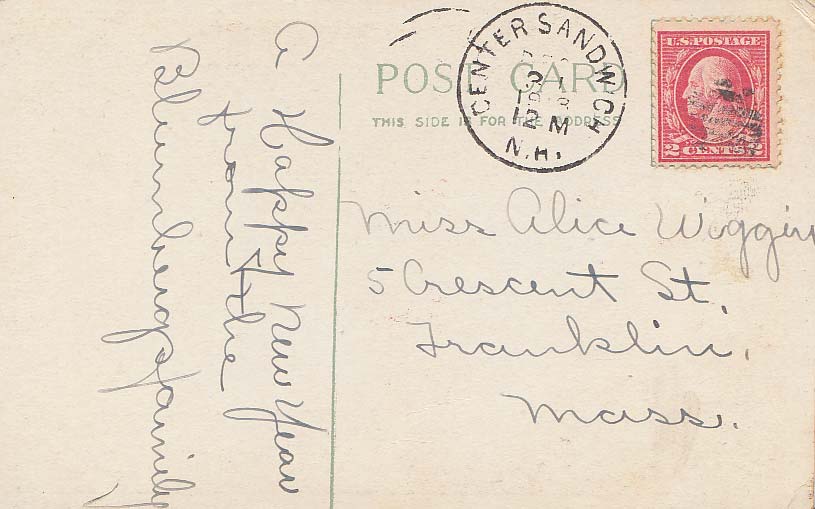 A Happy New Year
from the
Blumberg family
POST CARD
THIS SIDE IS FOR THE ADDRESS
CENTER SANDWICH
N.H.
U.S. POSTAGE
2 CENTS 2
Miss Alice Wiggin
5 Crescent St.
Franklin,
Mass.